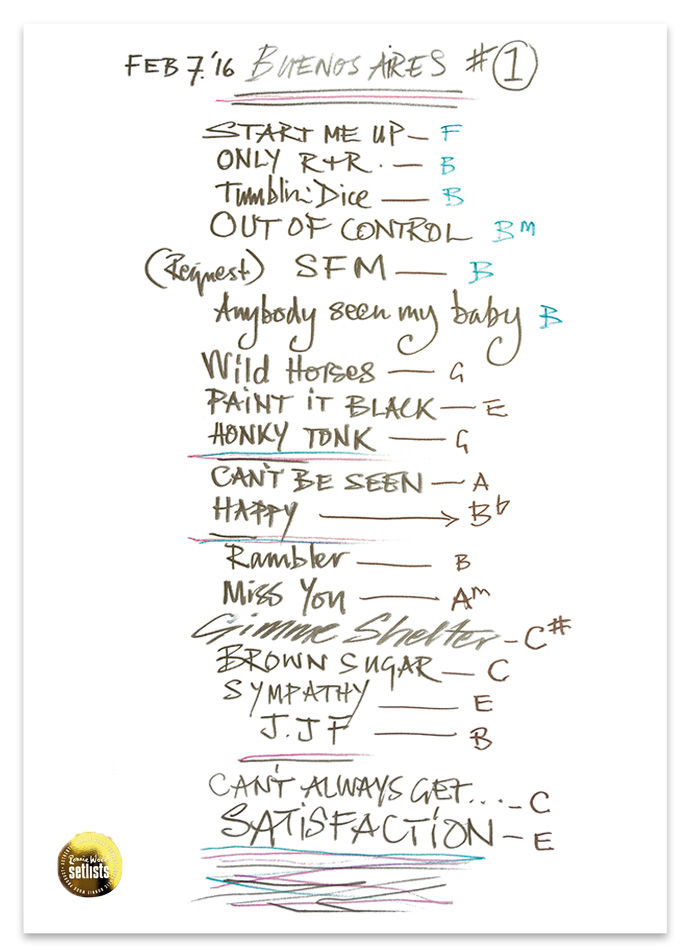 FEB 7.'16 BUENOS AIRES #1
START ME UP — F
ONLY R+R. — B
Tumblin' Dice — B
OUT OF CONTROL Bm
(Request) SFM — B
Anybody seen my baby B
Wild Horses — G
PAINT IT BLACK — E
HONKY TONK — G
CAN'T BE SEEN — A
HAPPY → Bb
Rambler — B
Miss You — Am
Gimme Shelter — C#
BROWN SUGAR — C
SYMPATHY — E
J.J F — B
CAN'T ALWAYS GET... — C
SATiSFACTiON — E
Ronnie Wood
setlists